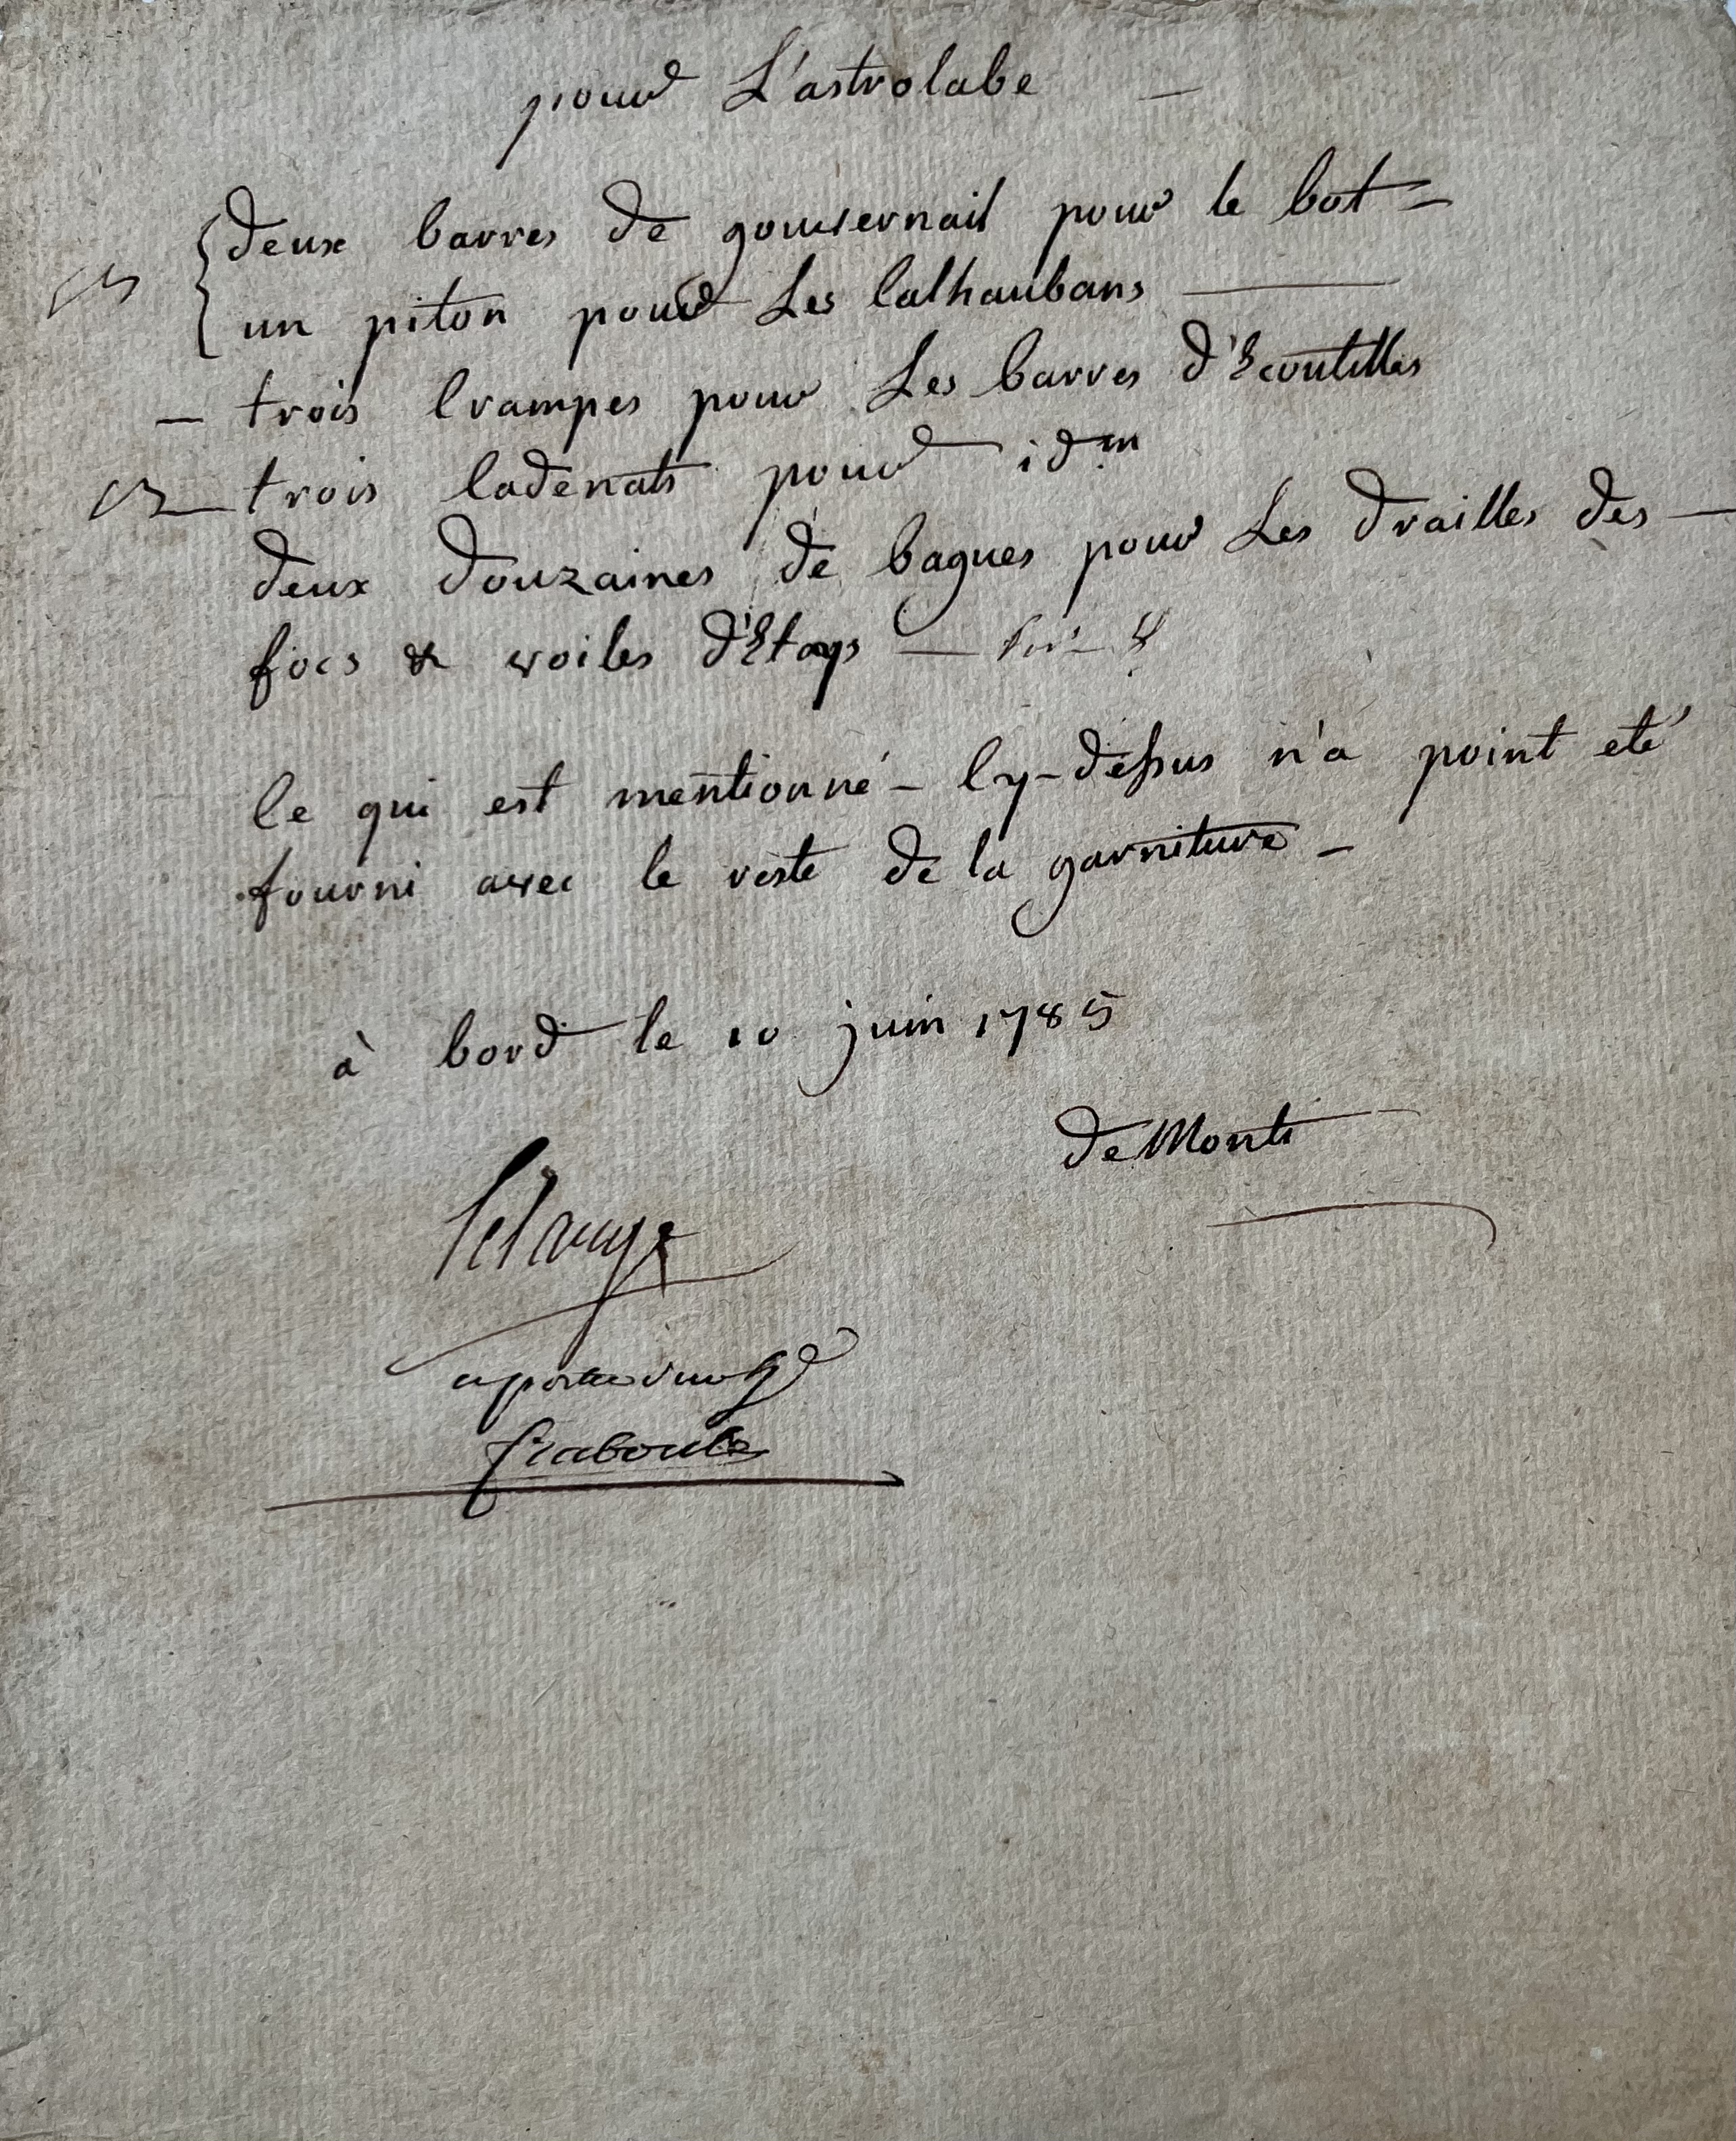 pour L'astrolabe —
deux barres de gouvernail pour le bot —
un piton pour Les Calhaubans —
— trois Crampes pour Les barres d'Ecoutilles
trois Cadenats pour idm
deux douzaines de bagues pour Les drailles des —
focs & voiles d'Etays —
Ce qui est mentionné - Cy-dessus n'a point eté
fourni avec le reste de la garniture -
à bord le 10 juin 1785
de Monti